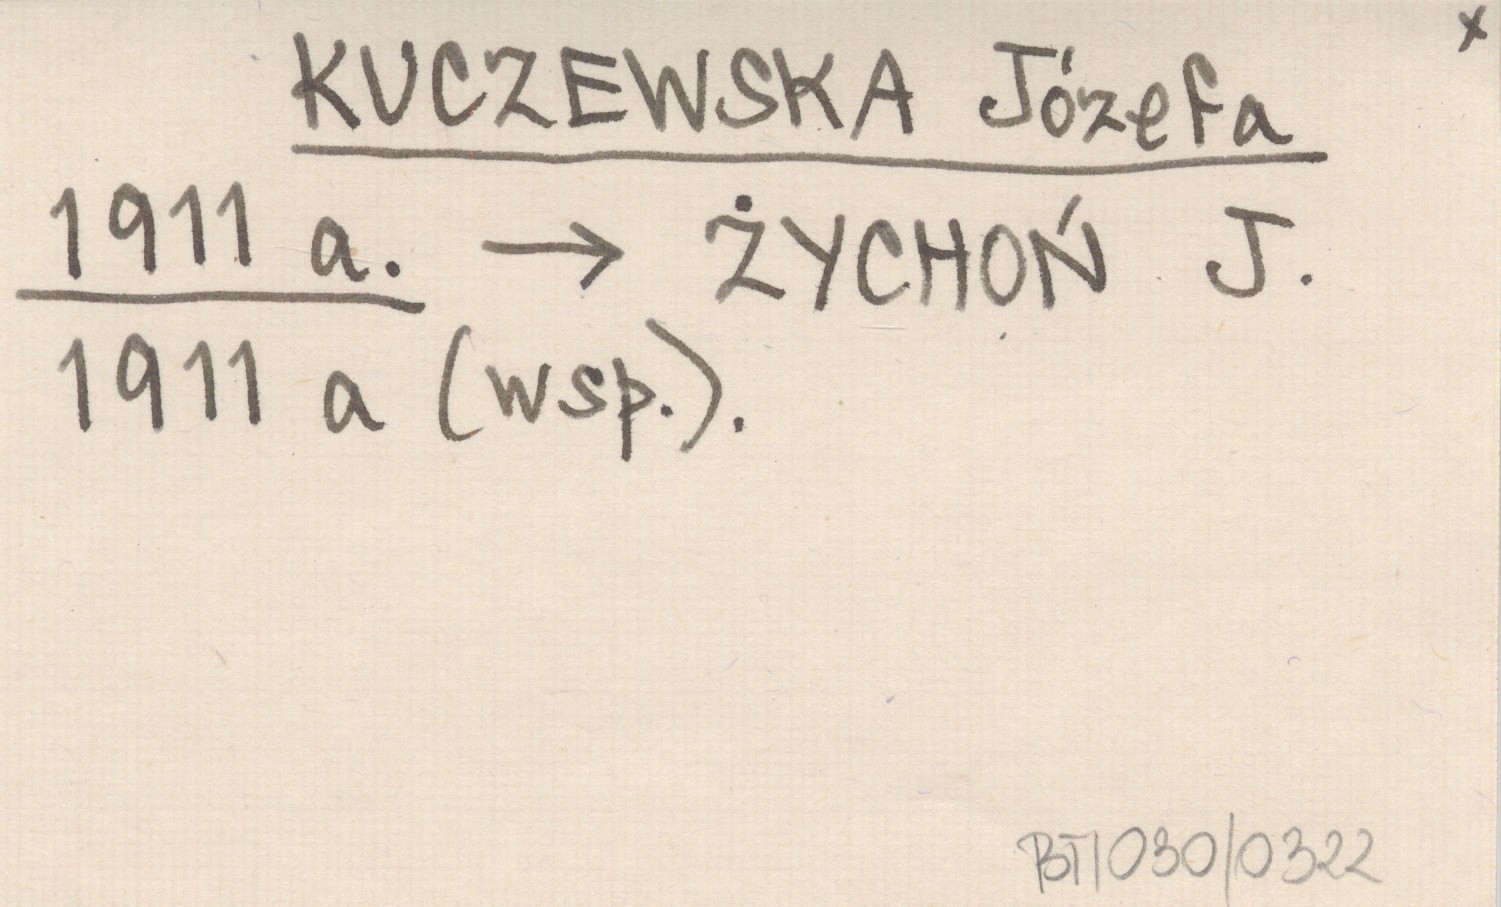 x
KUCZEWSKA Józefa
1911 a. → ŻYCHOŃ J.
1911 a (wsp.).
BT/030/0322